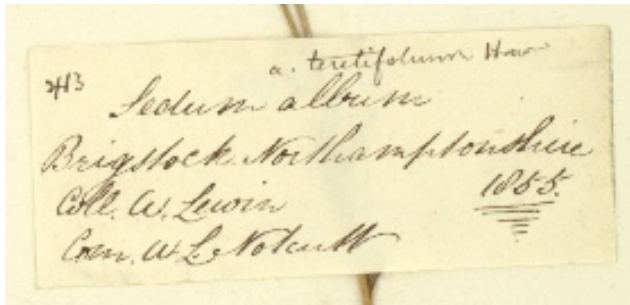 a. teretifolium Haw
413
Sedum album
Brigstock Northamptonshire
Coll. W. Lewin 1855.
Com. W. L. Notcutt